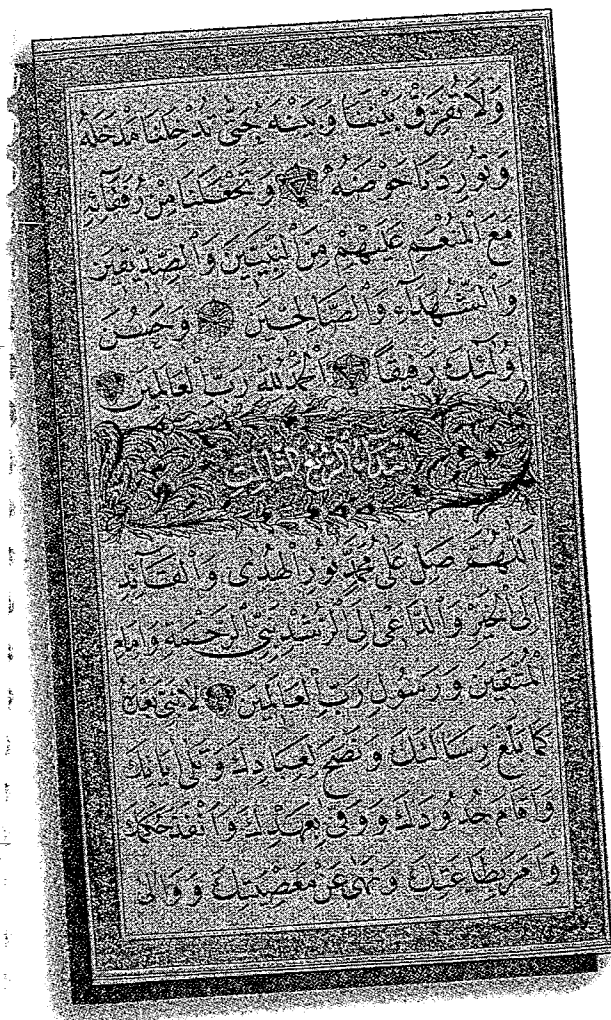 وَلَا تُفَرِّقْ بَيْنَنَا وَبَيْنَهُ حَتّٰى تُدْخِلَنَا مَدْخَلَهُ
وَتُورِدَنَا حَوْضَهُ وَتَجْعَلَنَا مِنْ رُفَقَآئِهِ
مَعَ الْمُنْعَمِ عَلَيْهِمْ مِنَ النَّبِيّينَ وَالصِّدّيقينَ
وَالشُّهَدَآءِ وَالصَّالِحينَ وَحَسُنَ
اُولٰئِكَ رَفيقًا اَلْحَمْدُ لِلّٰهِ رَبِّ الْعَالَمينَ
ابتداء الربع الثالث
اَللّٰهُمَّ صَلِّ عَلٰى مُحَمَّدٍ نُورِ الْهُدٰى وَالْقَآئِدِ
اِلَى الْخَيْرِ وَالدَّاعى اِلَى الرُّشْدِ نَبِىِّ الرَّحْمَةِ وَاِمَامِ
الْمُتَّقينَ وَرَسُولِ رَبِّ الْعَالَمينَ لَا نَبِىَّ بَعْدَهُ
كَمَا بَلَّغَ رِسَالَتَكَ وَنَصَحَ لِعِبَادِكَ وَتَلٰى اٰيَاتِكَ
وَاَقَامَ حُدُودَكَ وَوَفٰى بِعَهْدِكَ وَاَنْفَذَ حُكْمَكَ
وَاَمَرَ بِطَاعَتِكَ وَنَهٰى عَنْ مَعْصِيَتِكَ وَوَالٰى